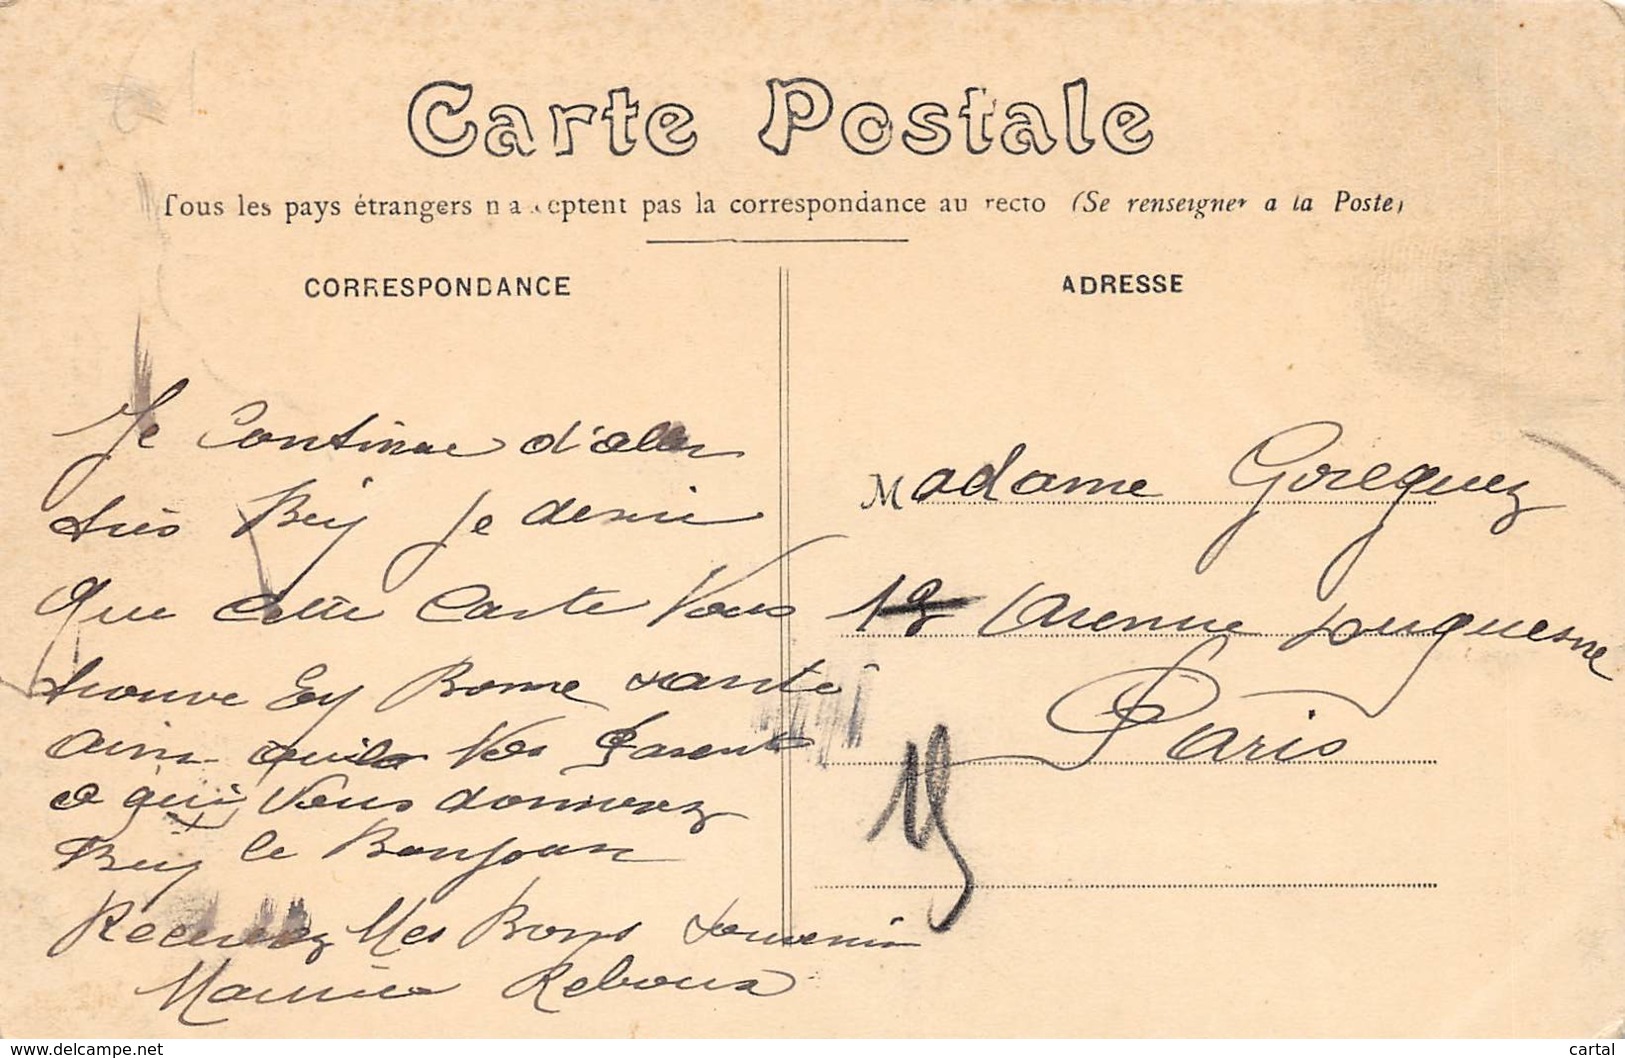 Carte Postale
Tous les pays étrangers n'acceptent pas la correspondance au recto (Se renseigner a la Poste)
CORRESPONDANCE
ADRESSE
Je Continue d'aller
très Bien Je desire
Que Cette Carte Vous
trouve En Bonne santé
Ainsi quils Vos Parents
a qui Vous donnerez
Bien le Bonjour
Recevez Mes Bons souvenir
Maurice Reboux
Madame
Avenue
Paris
19
www.delcampe.net
cartal